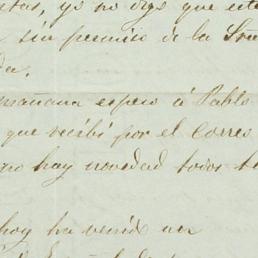 yo no digo que este
sin permiso de la
da.
mañana espero á Pablo
que recibí por el Correo
no hay novedad todos
hoy ha venido un